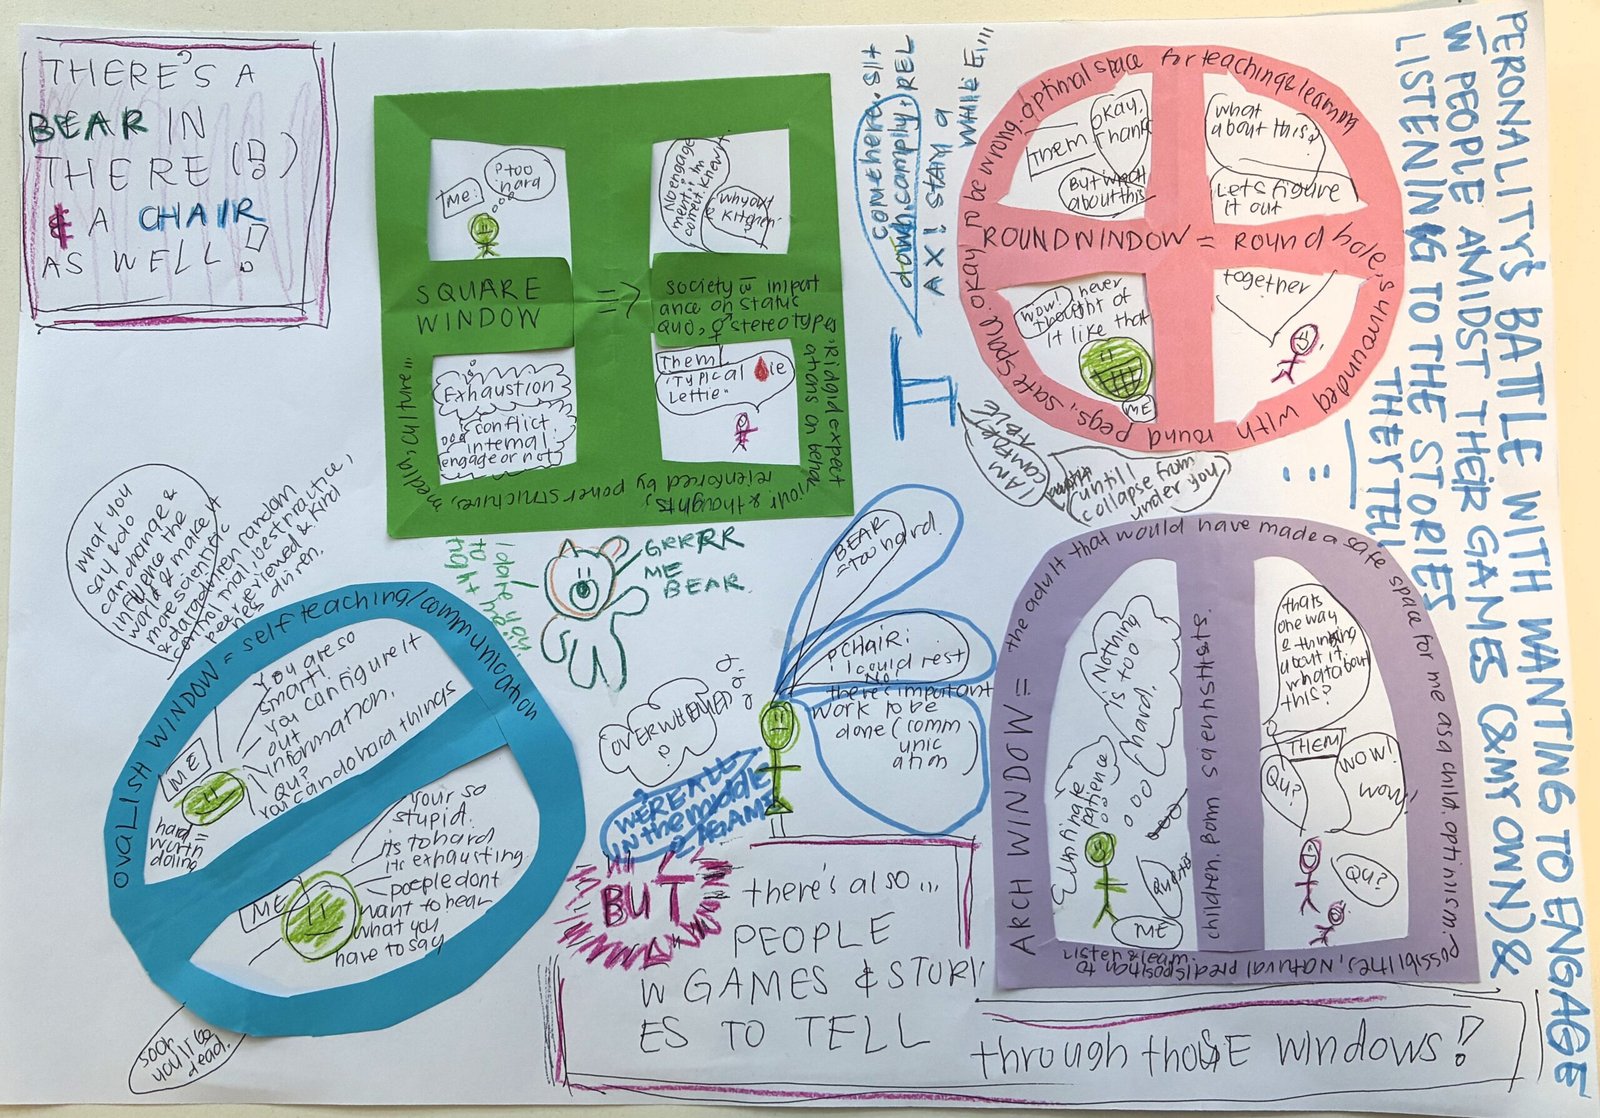 THERE'S A
BEAR IN
THERE
& A CHAIR
AS WELL!
ME:
too
hard
No engage
ment: i'm
correct. i know it.
why out
kitchen
SQUARE
WINDOW
=>
society w̄ import
ance on status
quo, stereotypes
Rigid expect
ations on behav
iour & thoughts,
reinforced by power structures,
media, culture...
Exhaustion
conflict
internal.
engage or not
Them
"Typical
Lettie"
come here. sit
down, camphy, REL
AX! STAY a
WHILE...
I AM
COMFORT
ABLE
until I
collapse from
under you
ROUND WINDOW = ROUND hole, surrounded with round pegs, safe space. okay to be wrong. optimal space for teaching & learning
Them
Okay.
Thank
But what
about this
what
about this?
Let's figure
it out
together
Wow! never
thought of
it like that
ME
PERONALITY'S BATTLE WITH WANTING TO ENGAGE
w̄ PEOPLE AMIDST THEIR GAMES (& MY OWN) &
LISTENING TO THE STORIES
THEY TELL
...
what you
say & do
can change &
influence the
world & make it
more scientific
& data driven random
control trial, best practice,
peer reviewed & kind
ness driven.
OVALISH WINDOW = self teaching/communication
ME
You are so
smart!
you can figure it
out
information.
QU?
You can do hard things
hard =
worth
doing
ME
Your so
stupid.
its to hard
its exhausting
poeple dont
want to hear
what you
have to say
soon
you'll be
dead.
GRRRR
ME
BEAR.
BEAR
= too hard.
CHAIR:
i could rest
No!
there's important
work to be
done (comm
unic
ation)
OVERWHELMED
?
WE'RE ALL
in the middle
GAME
BUT
there's also...
PEOPLE
W GAMES & STORI
ES TO TELL
through those windows!
ARCH WINDOW = the adult that would have made a safe space for me as a child. optimism. possibilities, natural predisposition to
speak & listen
children. Born scientists.
Nothing
is too
hard.
Infinate
patience
ME
thats
one way
of thinking
about it.
what about
this?
THEM
QU?
WOW!
wow!
QU?